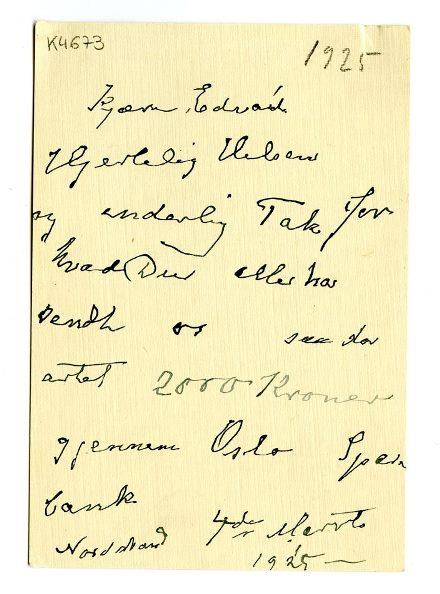 K4673
1925
Kjære Edvard
Hjertelig Hilsen
og inderlig Tak for
hvad Du atter har
sendt os saa stor
artet 2000 Kroner
gjennem Oslo Spare
bank
Nordstrand 4de Marts
1925 —